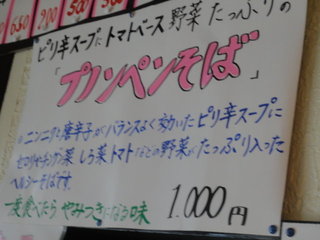 650
900
500
ピリ辛スープにトマトベース 野菜たっぷりの
「プノンペンそば」
ニンニクと唐辛子がバランスよく効いたピリ辛スープに
セロリやチンゲン菜 しろ菜 トマトなどの野菜がたっぷり入った
ヘルシーそばです。
一度食べたら やみつきになる味 1.000円